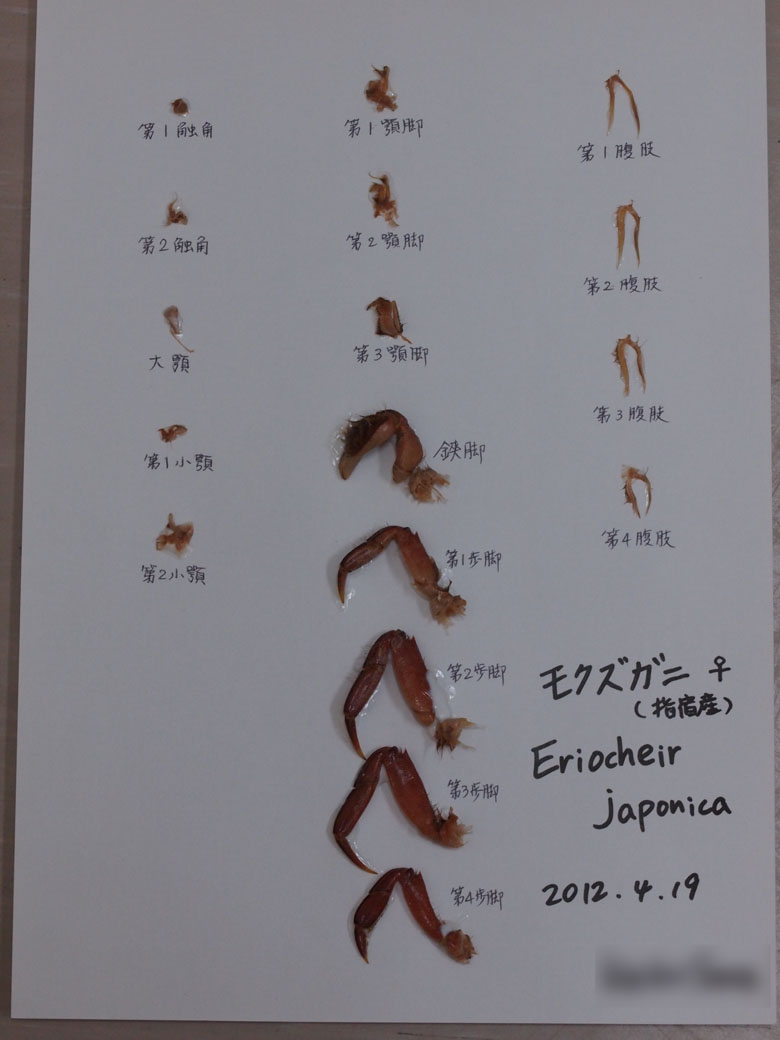 第1触角
第2触角
大顎
第1小顎
第2小顎
第1顎脚
第2顎脚
第3顎脚
鋏脚
第1歩脚
第2歩脚
第3歩脚
第4歩脚
第1腹肢
第2腹肢
第3腹肢
第4腹肢
モクズガニ ♀
(指宿産)
Eriocheir
japonica
2012.4.19